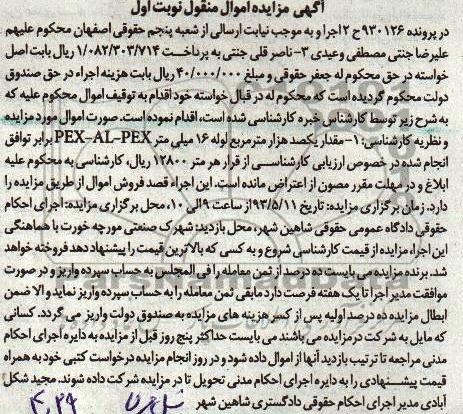 آگهی مزایده اموال منقول نوبت اول
در پرونده ۹۳۰۱۲۶ح ۲ اجرا و به موجب نیابت ارسالی از شعبه پنجم حقوقی اصفهان محکوم علیهم
علیرضا جنتی مصطفی وعیدی ۳- ناصر قلی جنتی به پرداخت ۱/۰۸۲/۳۰۳/۷۱۴ ریال بابت اصل
خواسته در حق محکوم له جعفر حقوقی و مبلغ ۴۰/۰۰۰/۰۰۰ ریال بابت هزینه اجراء در حق صندوق
دولت محکوم گردیده است که محکوم له در قبال خواسته خود اقدام به توقیف اموال محکوم علیه که
به شرح زیر توسط کارشناس خبره کارشناسی شده است، اقدام نموده است. صورت اموال مورد مزایده
و نظریه کارشناسی: ۱- مقدار یکصد هزار مترمربع لوله ۱۶ میلی متر PEX-AL-PEX برابر توافق
انجام شده در خصوص ارزیابی کارشناسی از قرار هر متر ۱۲۸۰۰ ریال، کارشناسی به محکوم علیه
ابلاغ و در مهلت مقرر مصون از اعتراض مانده است. این اجراء قصد فروش اموال از طریق مزایده را
دارد. زمان برگزاری مزایده: تاریخ ۹۳/۵/۱۱ از ساعت ۹ الی ۱۰، محل برگزاری مزایده: اجرای احکام
حقوقی دادگاه عمومی حقوقی شاهین شهر، محل بازدید: شهرک صنعتی مورچه خورت با هماهنگی
این اجراء، مزایده از قیمت کارشناسی شروع و به کسی که بالاترین قیمت را پیشنهاد دهد فروخته خواهد
شد. برنده مزایده می بایست ده درصد از ثمن معامله را فی المجلس به حساب سپرده واریز و در صورت
موافقت مدیر اجرا تا یک هفته فرصت دارد مابقی ثمن معامله را به حساب سپرده واریز نماید و الا ضمن
ابطال مزایده ده درصد اولیه پس از کسر هزینه های مزایده به صندوق دولت واریز می گردد. کسانی
که مایل به شرکت در مزایده می باشند می بایست حداکثر پنج روز قبل از مزایده به دایره اجرای احکام
مدنی مراجعه تا ترتیب بازدید آنها از اموال داده شود و در روز انجام مزایده درخواست کتبی خود به همراه
قیمت پیشنهادی را به دایره اجرای احکام مدنی تحویل تا در مزایده شرکت داده شوند. مجید شکل
آبادی مدیر اجرای احکام حقوقی دادگستری شاهین شهر
۴،۲۹